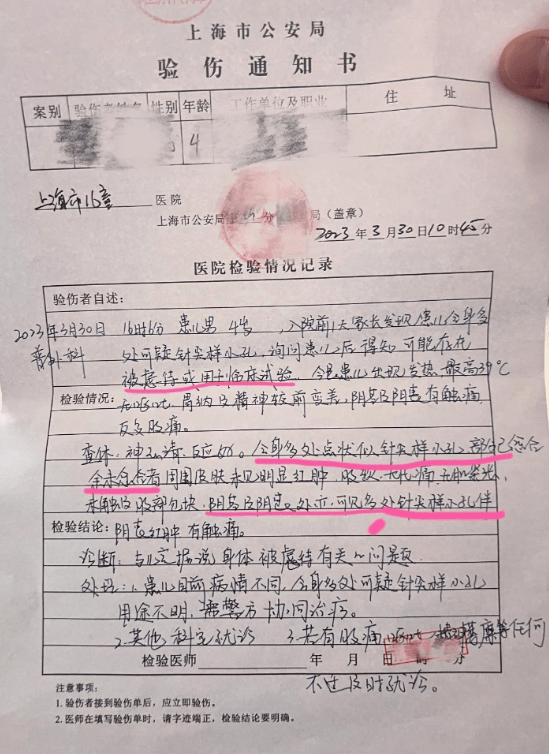 上海市公安局
验伤通知书
案别 性别 年龄 工作单位及职业 住 址
4
上海市儿童 医院
上海市公安局 分 局(盖章)
2023年3月30日10时45分
医院检验情况记录
验伤者自述:
2023年3月30日 16时6分 患儿男 4岁 ,入院前1天家长发现患儿全身多
普外科 处可疑针尖样小孔,询问患儿后得知可能存在
被虐待或用于临床试验. 今日患儿出现发热 最高39℃
检验情况: 胃纳及精神较前变差,阴茎及阴囊有触痛
反复腹痛。
查体:神志清 反应好。全身多处点状似针尖样小孔 部分已愈合
余未愈合者周围皮肤未见明显红肿 腹软 无
未触及 包块,阴茎及阴囊 处 可见多处针尖样小孔伴
检验结论: 阴茎红肿 有触痛。
诊断:与 据说身体被虐待有关的问题
处理:1.患儿目前病情不同,全身多处可疑针尖样小孔
用途不明,需警方协同治疗。
2.其他科室就诊 3.若有腹痛 等任何
检验医师 年 月 日 时 分
不适及时就诊。
注意事项:
1.验伤者接到验伤单后,应立即验伤。
2.医师在填写验伤单时,请字迹端正,检验结论要明确。